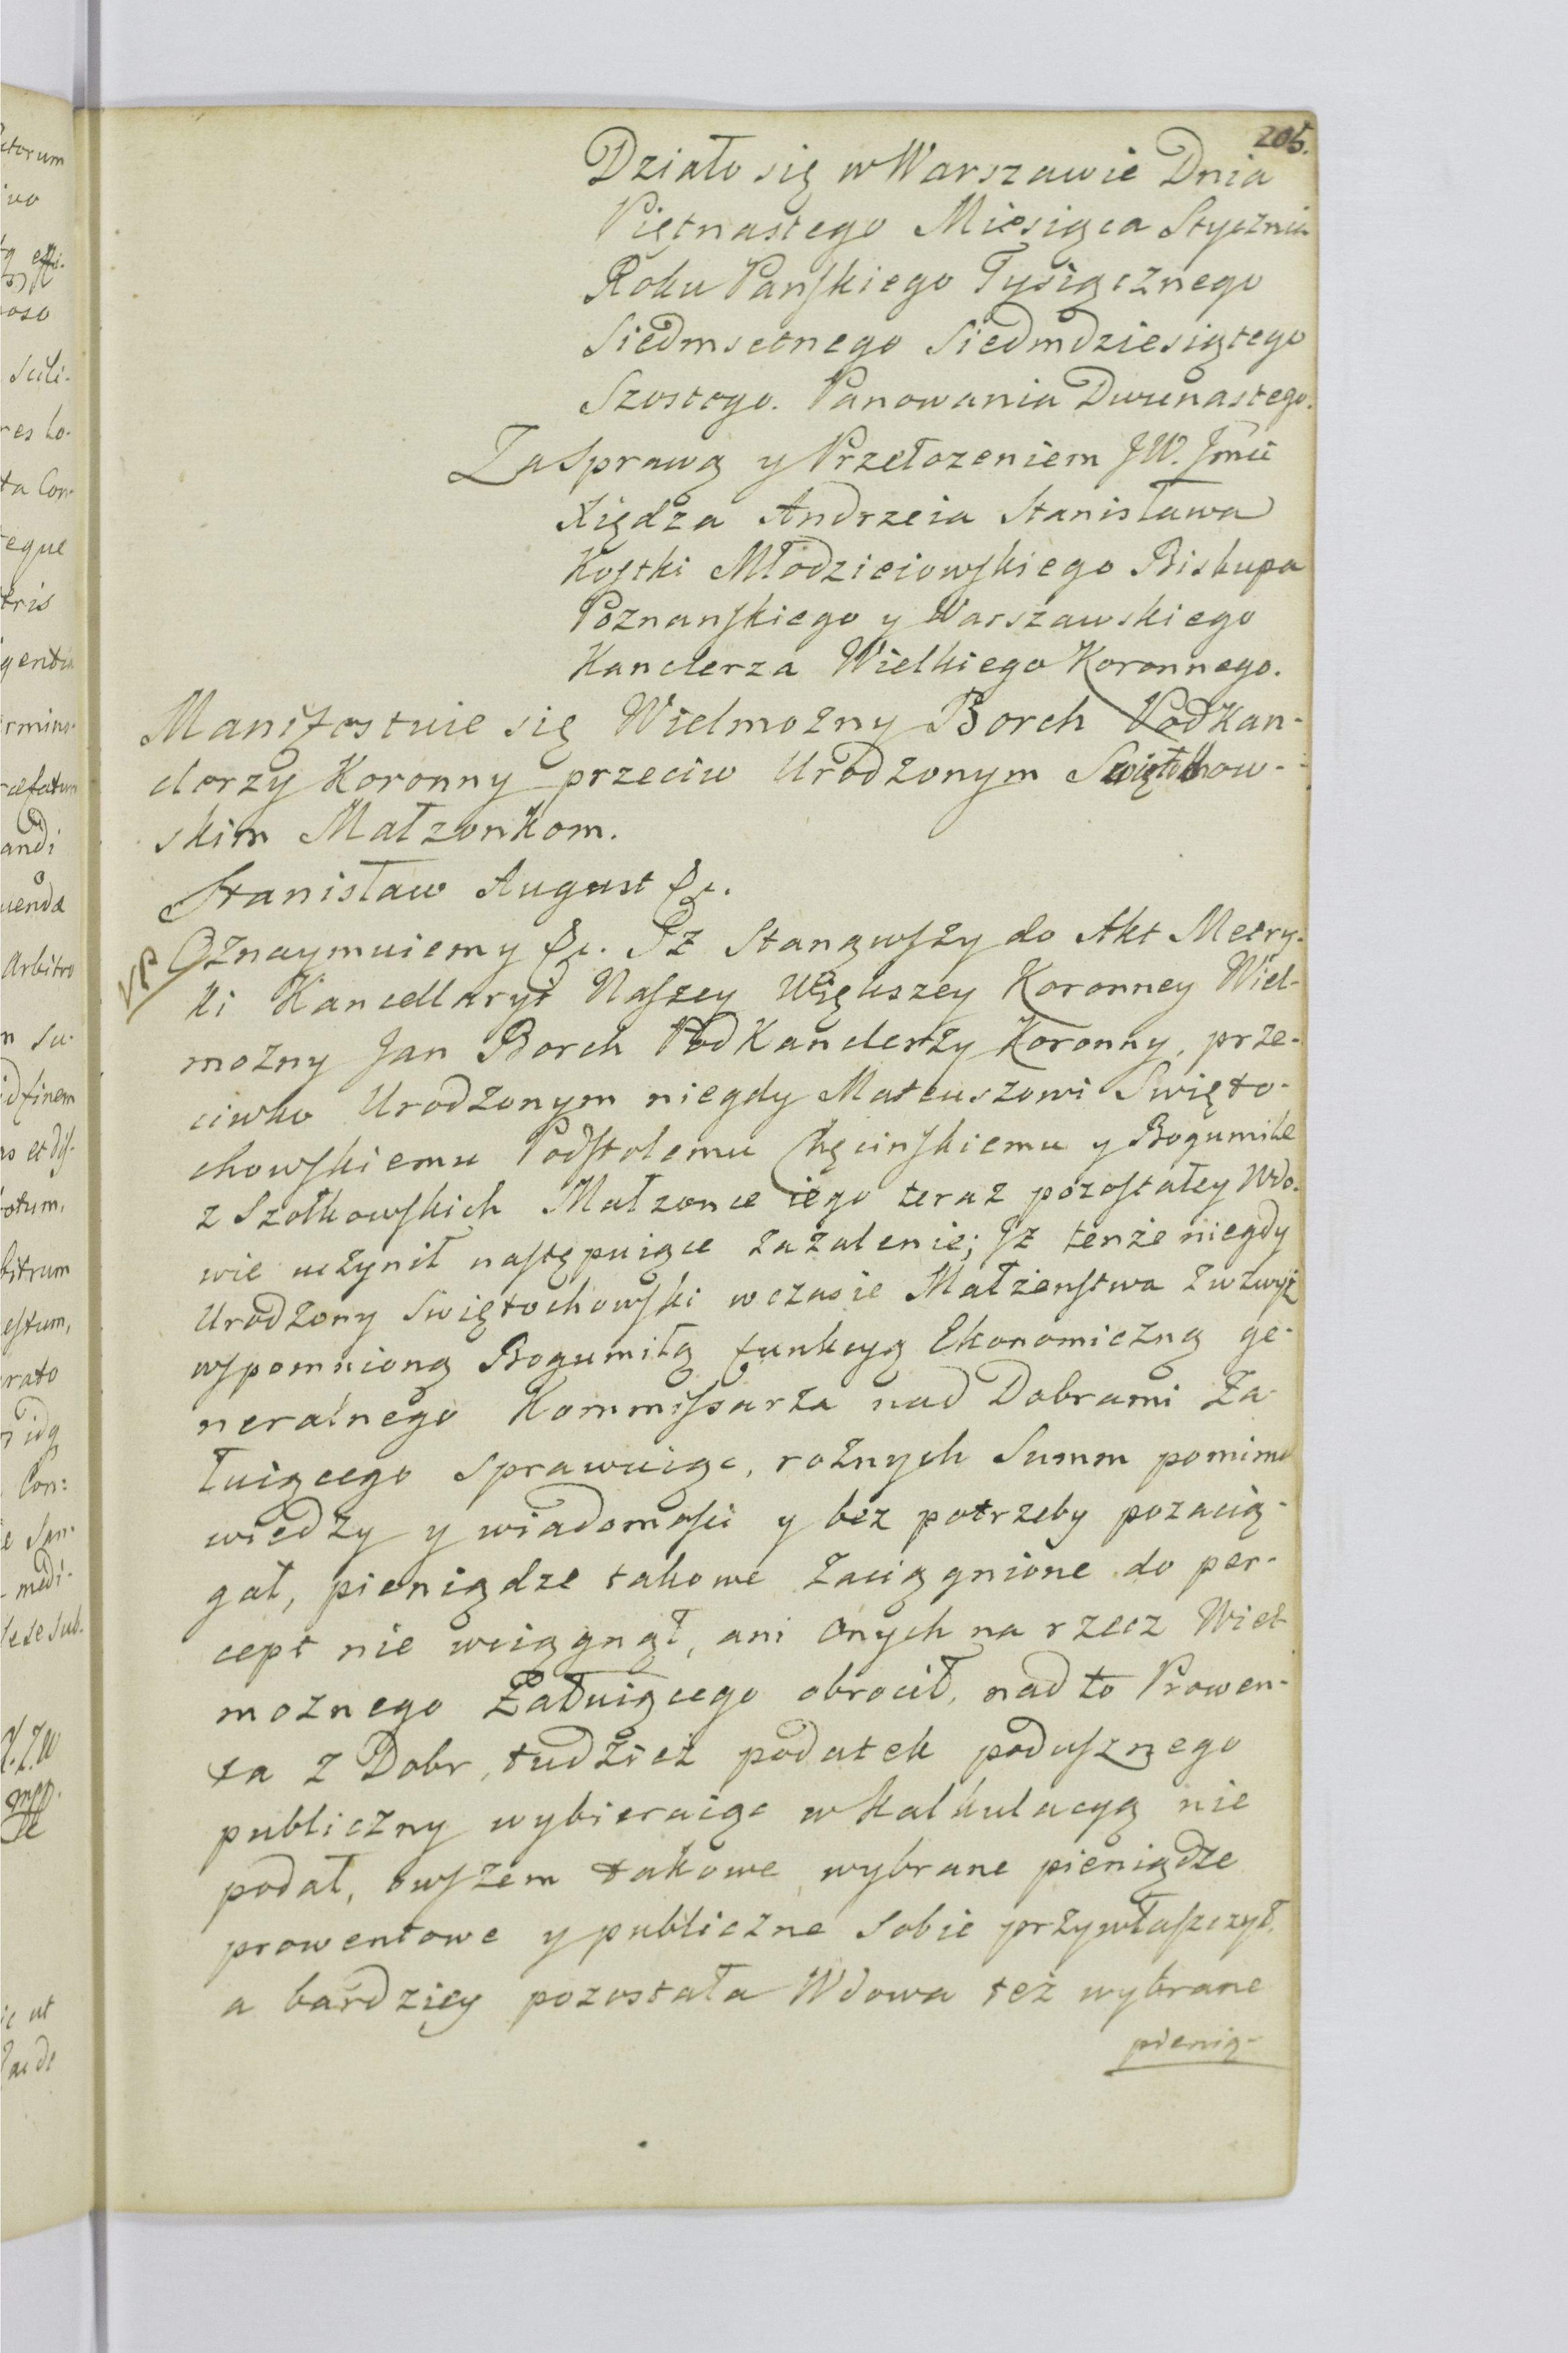 205.
Działo się w Warszawie Dnia
Piętnastego Miesiąca Stycznia
Roku Pańskiego Tysiącznego
Siedmsetnego Siedmdziesiątego
Szostego. Panowania Dwunastego.
Za Sprawą y Przełozeniem JW. Jmci
Xiędza Andrzeia Stanisława
Kostki Młodzieiowskiego Biskupa
Poznanskiego y Warszawskiego
Kanclerza Wielkiego Koronnego.
Manifestuie się Wielmozny Borch PodKan-
clerzy Koronny przeciw Urodzonym Swiętochow-
skim Małzonkom.
Stanisław August &c.
Oznaymuiemy &c. Iż Stanąwszy do Akt Metry-
ki Kancellaryi Naszey Większey Koronney Wiel-
mozny Jan Borch PodKanclerzy Koronny, prze-
ciwko Urodzonym niegdy Mateuszowi Swięto-
chowskiemu Podstolemu Chęcinskiemu y Bogumile
z Szołkowskich Małzonce iego teraz pozostałey Wdo-
wie uczynił następuiące zażalenie; Iż tenże niegdy
Urodzony Swiętochowski w czasie Małżenstwa z wzwyż
wspomnioną Bogumiłą funkcyą Ekonomiczną ge-
neralnego Kommissarza nad Dobrami Ża-
łuiącego sprawuiąc, roznych Summ pomimo
wiedzy y wiadomości y bez potrzeby pozacią-
gał, pieniądze takowe zaciągnione do per-
cept nie wciągnął, ani onych na rzecz Wiel-
moznego Żałuiącego obrocił, nad to Prowen-
ta z Dobr, tudzież podatek podusznego
publiczny wybieraiąc w kalkulacyą nie
podał, owszem takowe wybrane pieniądze
prowentowe y publiczne sobie przywłaszczył,
a bardziey pozostała Wdowa też wybrane
pienią-